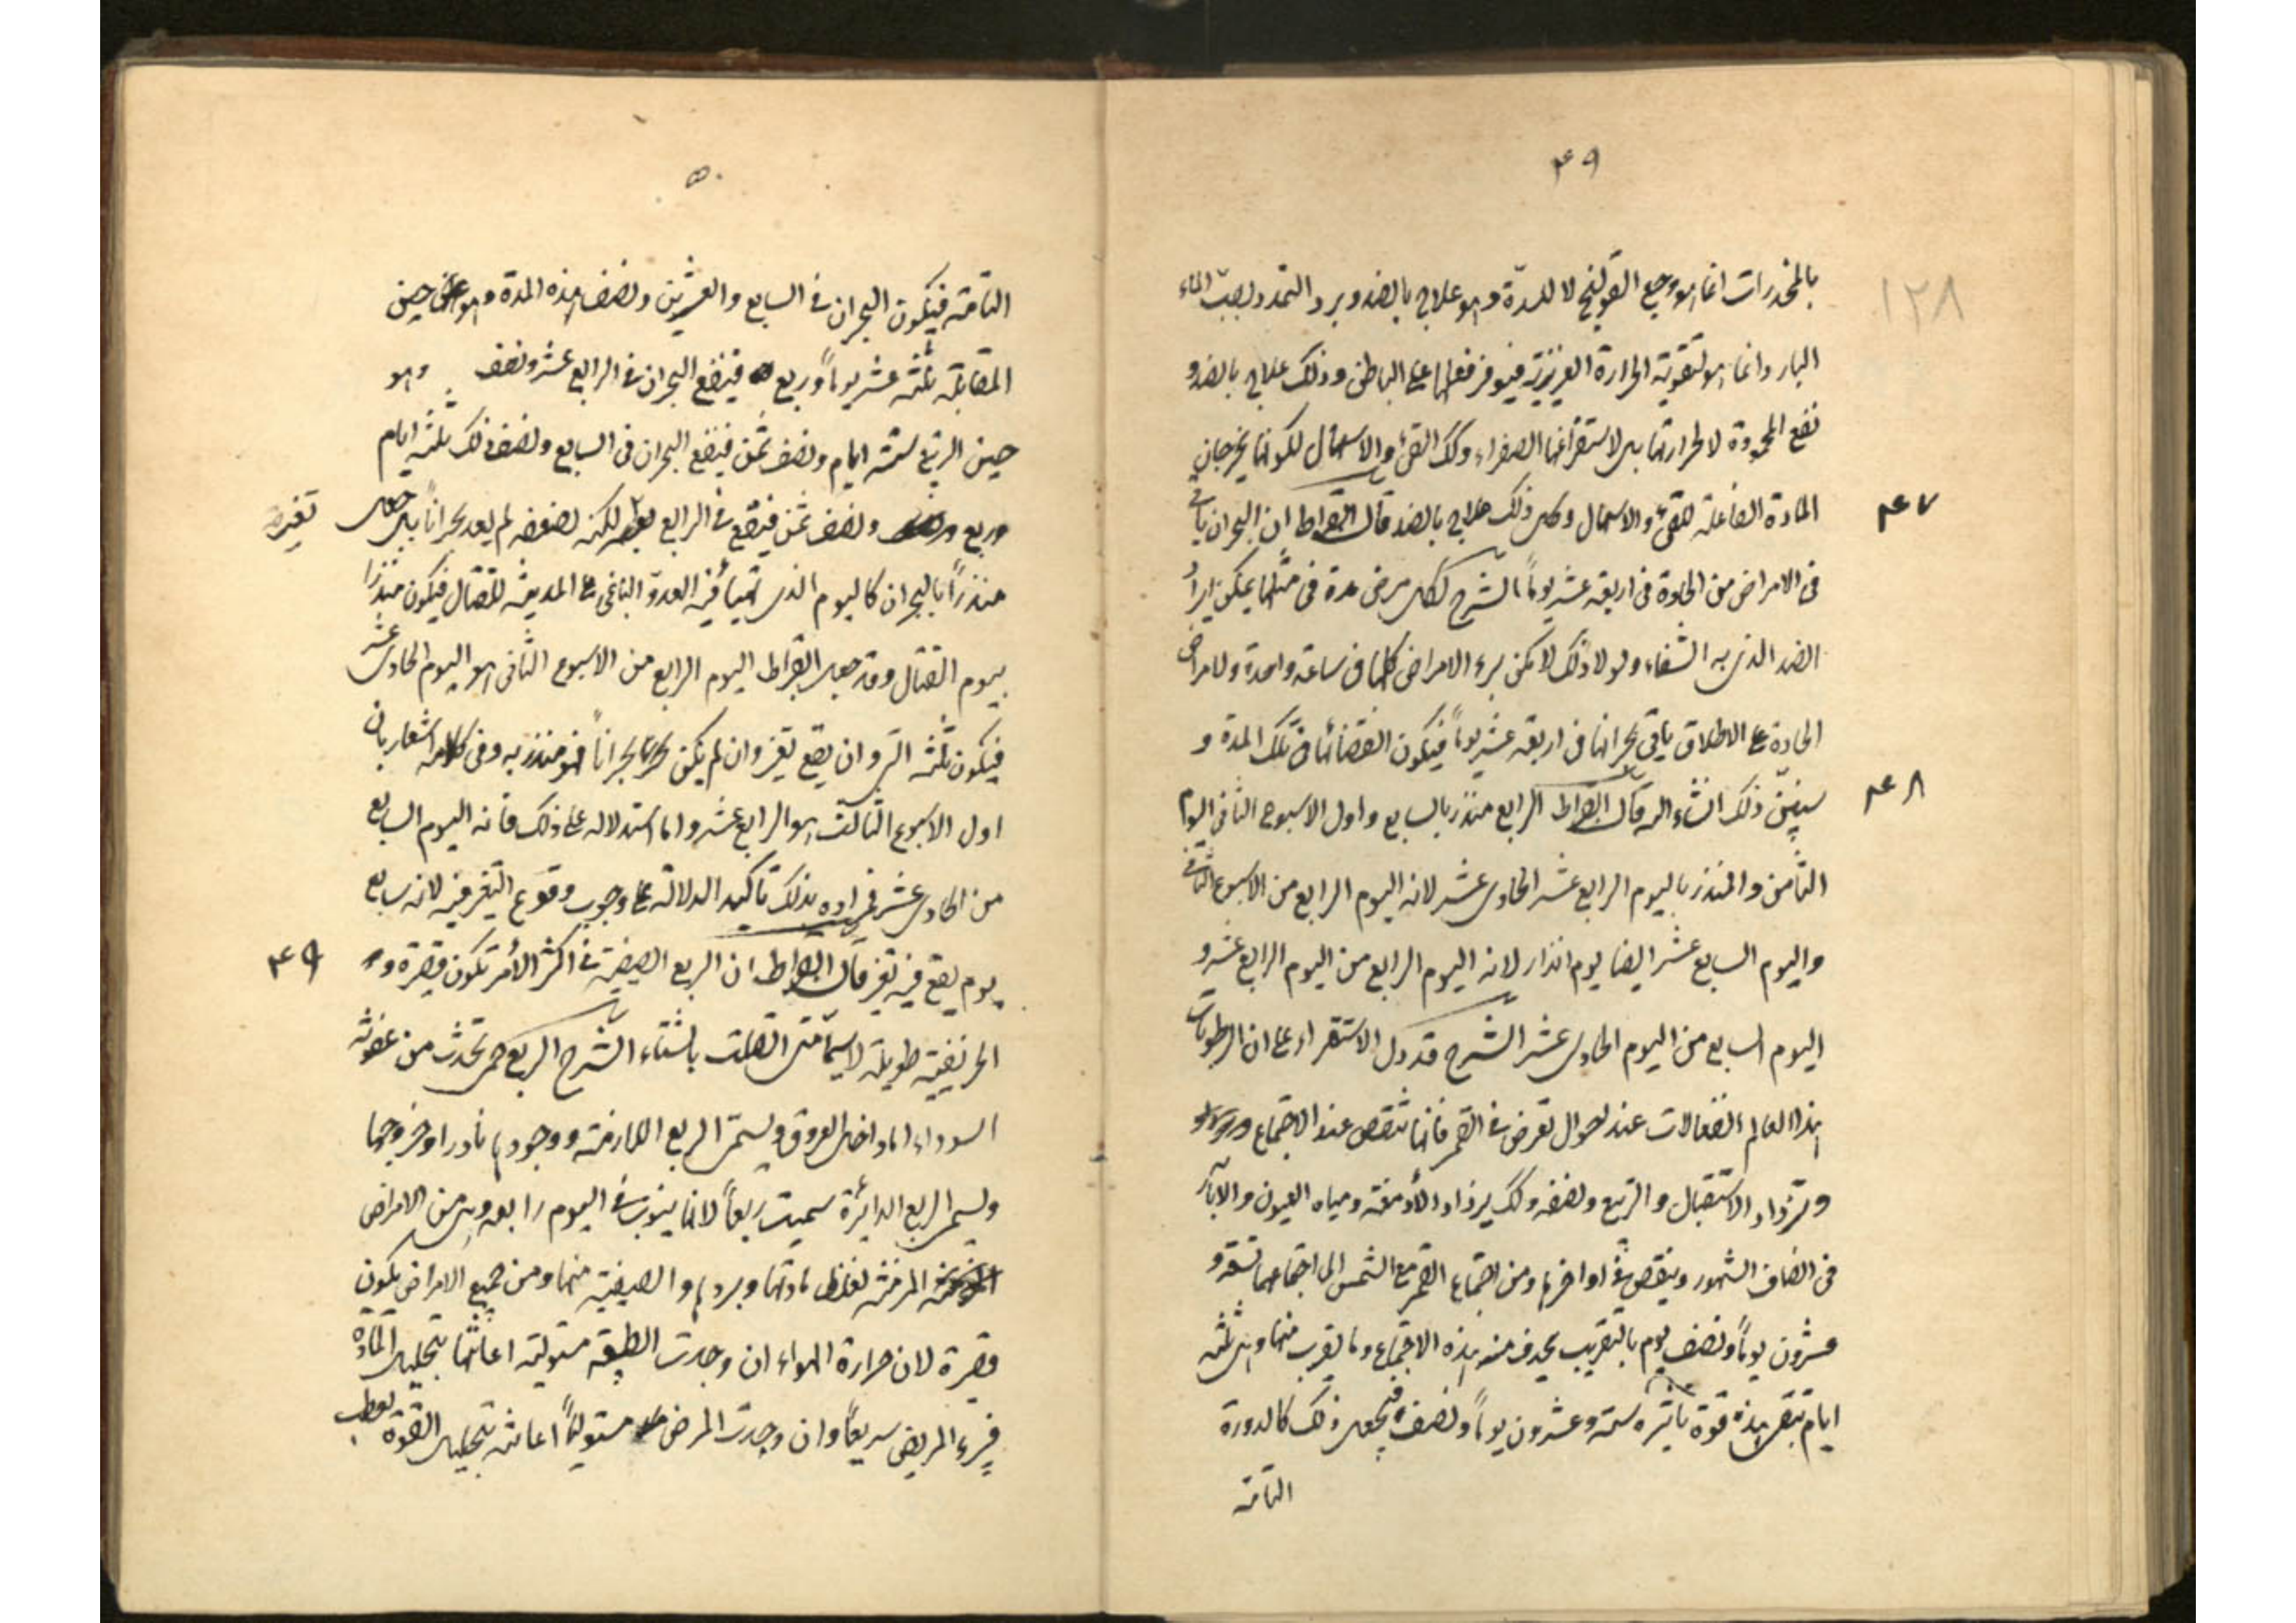 ٤٩
١٢٨
بالمخدرات انما هو وجع القولنج لا للسدة وهو علاج بالضد وبرد التمدد بصب الماء
البارد انما هو لتقوية الحرارة الغريزية فيتوفر فعلها على الباطن وذلك علاج بالضد و
نفع المحمودة لا لحرارتها بل لاستفراغها الصفراء وكك القئ والاسهال لكونهما يخرجان
٤٧
المادة الفاعلة للقئ والاسهال وكل ذلك علاج بالضد قال ابقراط ان البحران ياتى
فى الامراض من الحادة فى اربعة عشر يوماً الشرح لكل مرض مدة فى مثلها يمكن ايراد
الضد الذى به الشفاء ولولا ذلك لامكن برء الامراض كلها فى ساعة واحدة والامراض
الحادة على الاطلاق ياتى بحرانها فى اربعة عشر يوماً فيكون انقضائها فى تلك المدة و
٤٨
سيبين ذلك انشاء الله قال ابقراط الرابع منذر بالسابع واول الاسبوع الثانى اليوم
الثامن والمنذر باليوم الرابع عشر الحادى عشر لانه اليوم الرابع من الاسبوع الثانى
واليوم السابع عشر ايضا يوم انذار لانه اليوم الرابع من اليوم الرابع عشر و
اليوم السابع من اليوم الحادى عشر الشرح قد دل الاستقراء على ان لرطوبات
هذا العالم انفعالات عند احوال تعرض فى القمر فانها تنقص عند الاجتماع
وتزداد الاستقبال والتربيع ونصفه وكك يزداد الأدمغة ومياه العيون والابآر
فى انصاف الشهور وينقص فى اواخرها ومن اجتماع القمر مع الشمس الى اجتماعهما تسعة و
عشرون يوماً ونصف يوم بالتقريب يحذف منه هذه الاجتماع وما يقرب منها وهى ثلثة
ايام تبقى هذه قوة تاثيره ستة وعشرون يوماً ونصف فيجعل ذلك كالدورة
التامة
٥٠
التامة فيكون البحران فى السابع والعشرين ونصف هذه المدة وهو اعنى حين
المقابلة ثلثة عشر يوماً وربع فيقع البحران فى الرابع عشر ونصف وهو
حين التربيع ستة ايام ونصف ثمن فيقع البحران فى السابع ونصف ذلك ثلثة ايام
وربع ونصف ثمن فيقع فى الرابع لكنه لضعفه لم يعد بحراناً بل جعل
منذراً بالبحران كاليوم الذى تهيأ فيه العدو الباغى على المدينة للقتال فيكون منذراً
بيوم القتال وقد جعل ابقراط اليوم الرابع من الاسبوع الثانى هو اليوم الحادى عشر
فيكون ثلثة الذى وان يقع تغير وان لم يكن بحراناً فهو منذر به وفى كلامه اشعار بان
اول الاسبوع الثالث هو الرابع عشر واما استدلاله على ذلك فانه اليوم السابع
من الحادى عشر فمراده بذلك تاكيد الدلالة على وجوب وقوع التغير فيه لانه سابع
٤٩
يوم يقع فيه تغير قال ابقراط ان الربع الصيفية فى اكثر الأمر تكون قصيرة و
الخريفية طويلة لاسيما متى اتصلت بالشتاء الشرح الربع حمى تحدث من عفونة
السوداء اما داخل العروق ويسمى الربع اللازمة ووجودها نادر او خروجها
ويسمى الربع الدائرة سميت ربعاً لانها ينوب فى اليوم رابعه وهى من الامراض
المزمنة لغلظ مادتها وبردها والصيفية منها ومن جميع الامراض يكون
قصيرة لان حرارة الهواء ان وجدت الطبيعة مستولية اعانتها بتحليل المادة
فيبرء المريض سريعاً وان وجدت المرض مستولياً اعانته بتحليل القوة